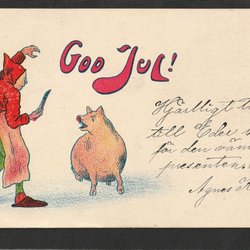 God Jul!
Hjärtligt t
till Eder s
för den vän
presenten
Agnes